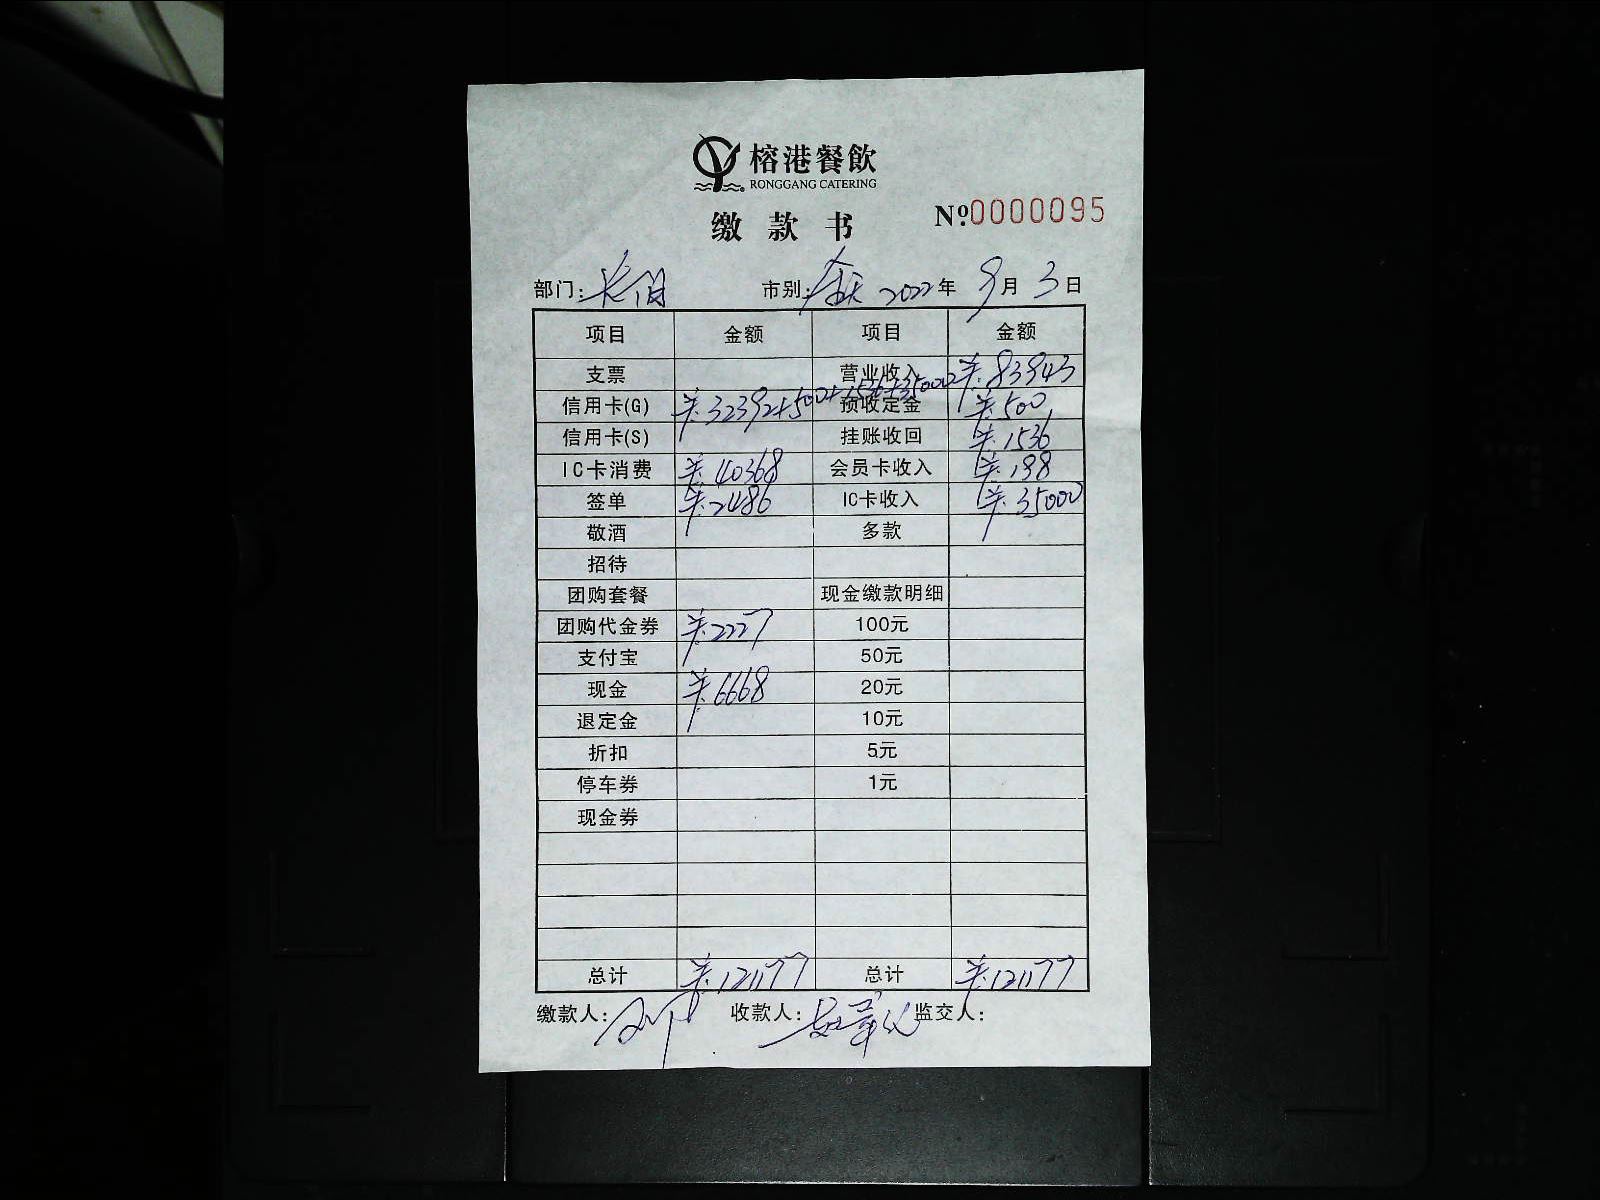 榕港餐飲
RONGGANG CATERING
缴款书 Nº0000095
部门: 市别: 全天 2022年 9月 3日
项目 金额 项目 金额
支票 营业收入 ¥83943
信用卡(G) ¥32392+500+1536+35000 预收定金 ¥500
信用卡(S) 挂账收回 ¥1536
IC卡消费 ¥40368 会员卡收入 ¥198
签单 ¥2486 IC卡收入 ¥35000
敬酒 多款
招待
团购套餐 现金缴款明细
团购代金券 ¥2227 100元
支付宝 50元
现金 ¥6668 20元
退定金 10元
折扣 5元
停车券 1元
现金券
总计 ¥121177 总计 ¥121177
缴款人: 收款人: 监交人: